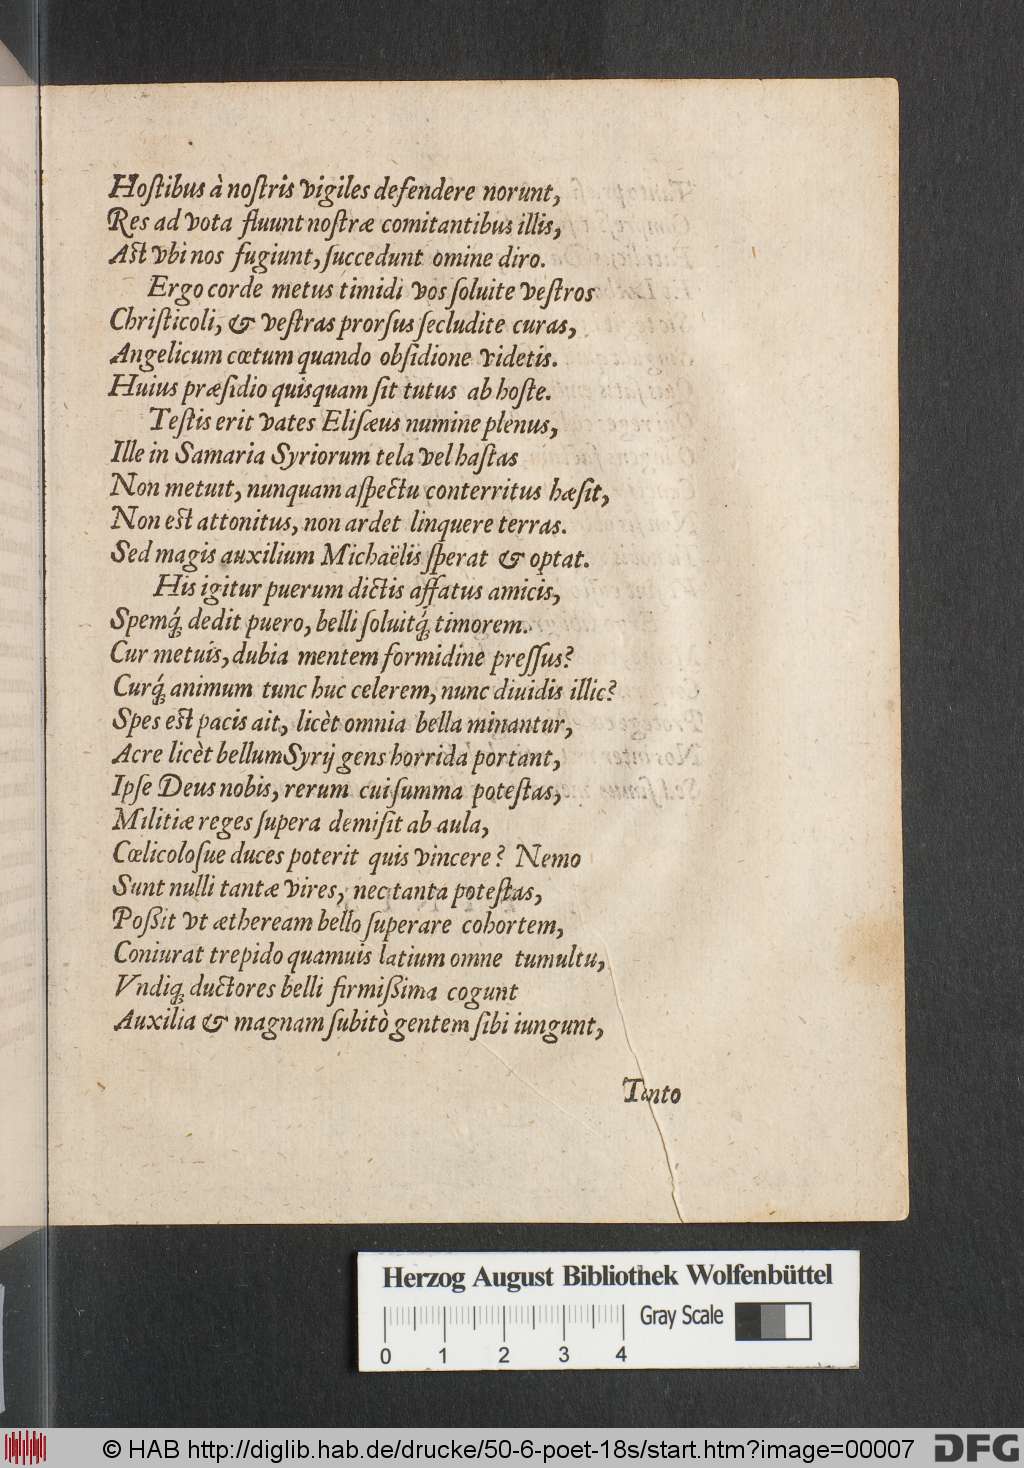 Hoſtibus à noſtris vigiles defendere norunt,
Res ad vota fluunt noſtræ comitantibus illis,
Aſt vbi nos fugiunt, ſuccedunt omine diro.
Ergo corde metus timidi vos ſoluite veſtros
Chriſticoli, & veſtras prorſus ſecludite curas,
Angelicum cœtum quando obſidione videtis.
Huius præſidio quisquam ſit tutus ab hoſte.
Teſtis erit vates Eliſæus numine plenus,
Ille in Samaria Syriorum tela vel haſtas
Non metuit, nunquam aſpectu conterritus hæſit,
Non eſt attonitus, non ardet linquere terras.
Sed magis auxilium Michaëlis ſperat & optat.
His igitur puerum dictis affatus amicis,
Spemq́; dedit puero, belli ſoluitq́; timorem.
Cur metuis, dubia mentem formidine preſſus?
Curq́; animum tunc huc celerem, nunc diuidis illic?
Spes eſt pacis ait, licèt omnia bella minantur,
Acre licèt bellum Syrij gens horrida portant,
Ipſe Deus nobis, rerum cui ſumma poteſtas,
Militiæ reges ſupera demiſit ab aula,
Cœlicoloſue duces poterit quis vincere? Nemo
Sunt nulli tantæ vires, nec tanta poteſtas,
Poßit vt ætheream bello ſuperare cohortem,
Coniurat trepido quamuis latium omne tumultu,
Vndiq; ductores belli firmißima cogunt
Auxilia & magnam ſubitò gentem ſibi iungunt,
Tanto
Herzog August Bibliothek Wolfenbüttel
Gray Scale
0 1 2 3 4
© HAB http://diglib.hab.de/drucke/50-6-poet-18s/start.htm?image=00007
DFG